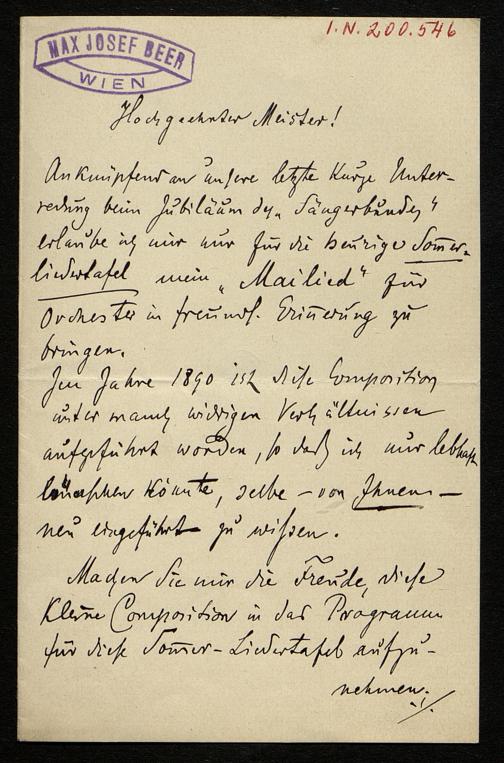 I.N. 200.546
MAX JOSEF BEER
WIEN
Hochgeehrter Meister!
Anknüpfend an unsere letzte kurze Unter-
redung beim Jubiläum des „Sängerbundes"
erlaube ich mir nur für die heurige Som̅er-
liedertafel mein „Mailied" für
Orchester in freundl. Erin̅erung zu
bringen.
Im Jahre 1890 ist diese Composition
unter manch widrigen Verhältnissen
aufgeführt worden, so daß ich nur lebhaft
wünschen könnte, selbe – von Ihnen –
neu eingeführt zu wissen.
Machen Sie mir die Freude, diese
kleine Composition in das Programm
für diese Som̅er-Liedertafel aufzu-
nehmen.